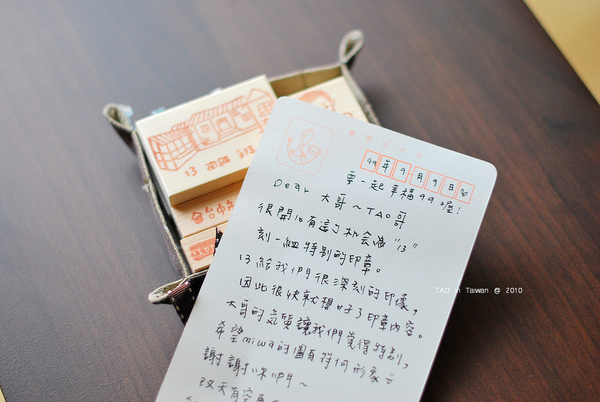 99年9月9日
要一起幸福99喔!
Dear 大哥~TAO哥
很開心有這個机会為"13"
刻一組特別的印章。
13給我們很深刻的印像,
因此很快就想好了印章內容。
大哥的氣質讓我們覺得特別,
希望miwa的圖有符何形象
謝謝你們~
改天有空
13
台中
TAO in Taiwan @ 2010